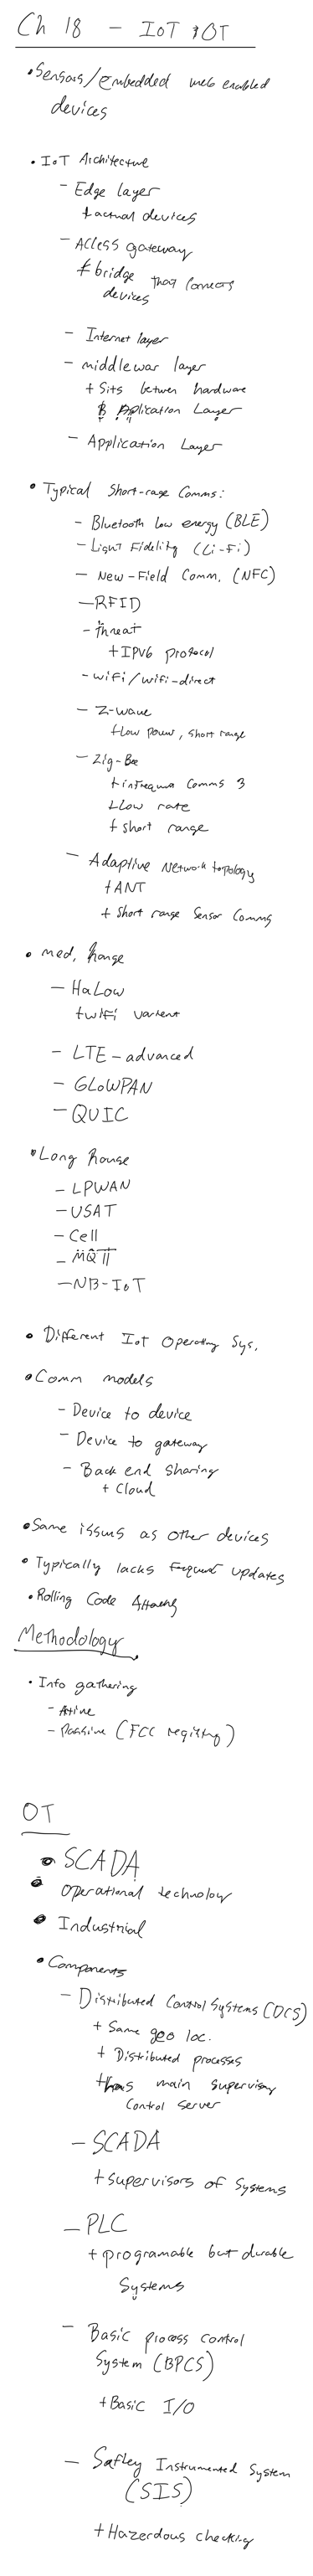 Ch 18 - IoT & OT
• Sensors/embedded web enabled
devices
• IoT Architecture
- Edge layer
+ actual devices
- Access gateway
+ bridge that connects
devices
- Internet layer
- middlewar layer
+ Sits between hardware
& Application Layer
- Application Layer
• Typical Short-rage Comms:
- Bluetooth low energy (BLE)
- Light Fidelity (Li-Fi)
- New-Field Comm. (NFC)
- RFID
- threat
+ IPV6 protocol
- wifi/wifi-direct
- Z-wave
+ low power, short range
- Zig-Bee
+ infrequent Comms 3
+ Low rate
+ short range
- Adaptive Network topology
+ ANT
+ Short range Sensor Comms
• med. Range
- HaLow
+ wifi varient
- LTE-advanced
- GLoWPAN
- QUIC
• Long Range
- LPWAN
- USAT
- Cell
- MQTT
- NB-IoT
• Different IoT Operating Sys.
• Comm models
- Device to device
- Device to gateway
- Back end Sharing
+ Cloud
• Same issues as other devices
• Typically lacks frequent updates
• Rolling Code Attacks
Methodology
• Info gathering
- Active
- Passive (FCC registry)
OT
• SCADA
• Operational technology
• Industrial
• Components
- Distributed Control Systems (DCS)
+ Same geo loc.
+ Distributed processes
+ has main supervisory
Control server
- SCADA
+ supervisors of Systems
- PLC
+ programable but durable
Systems
- Basic process control
System (BPCS)
+ Basic I/O
- Saftey Instrumented System
(SIS)
+ Hazerdous checking